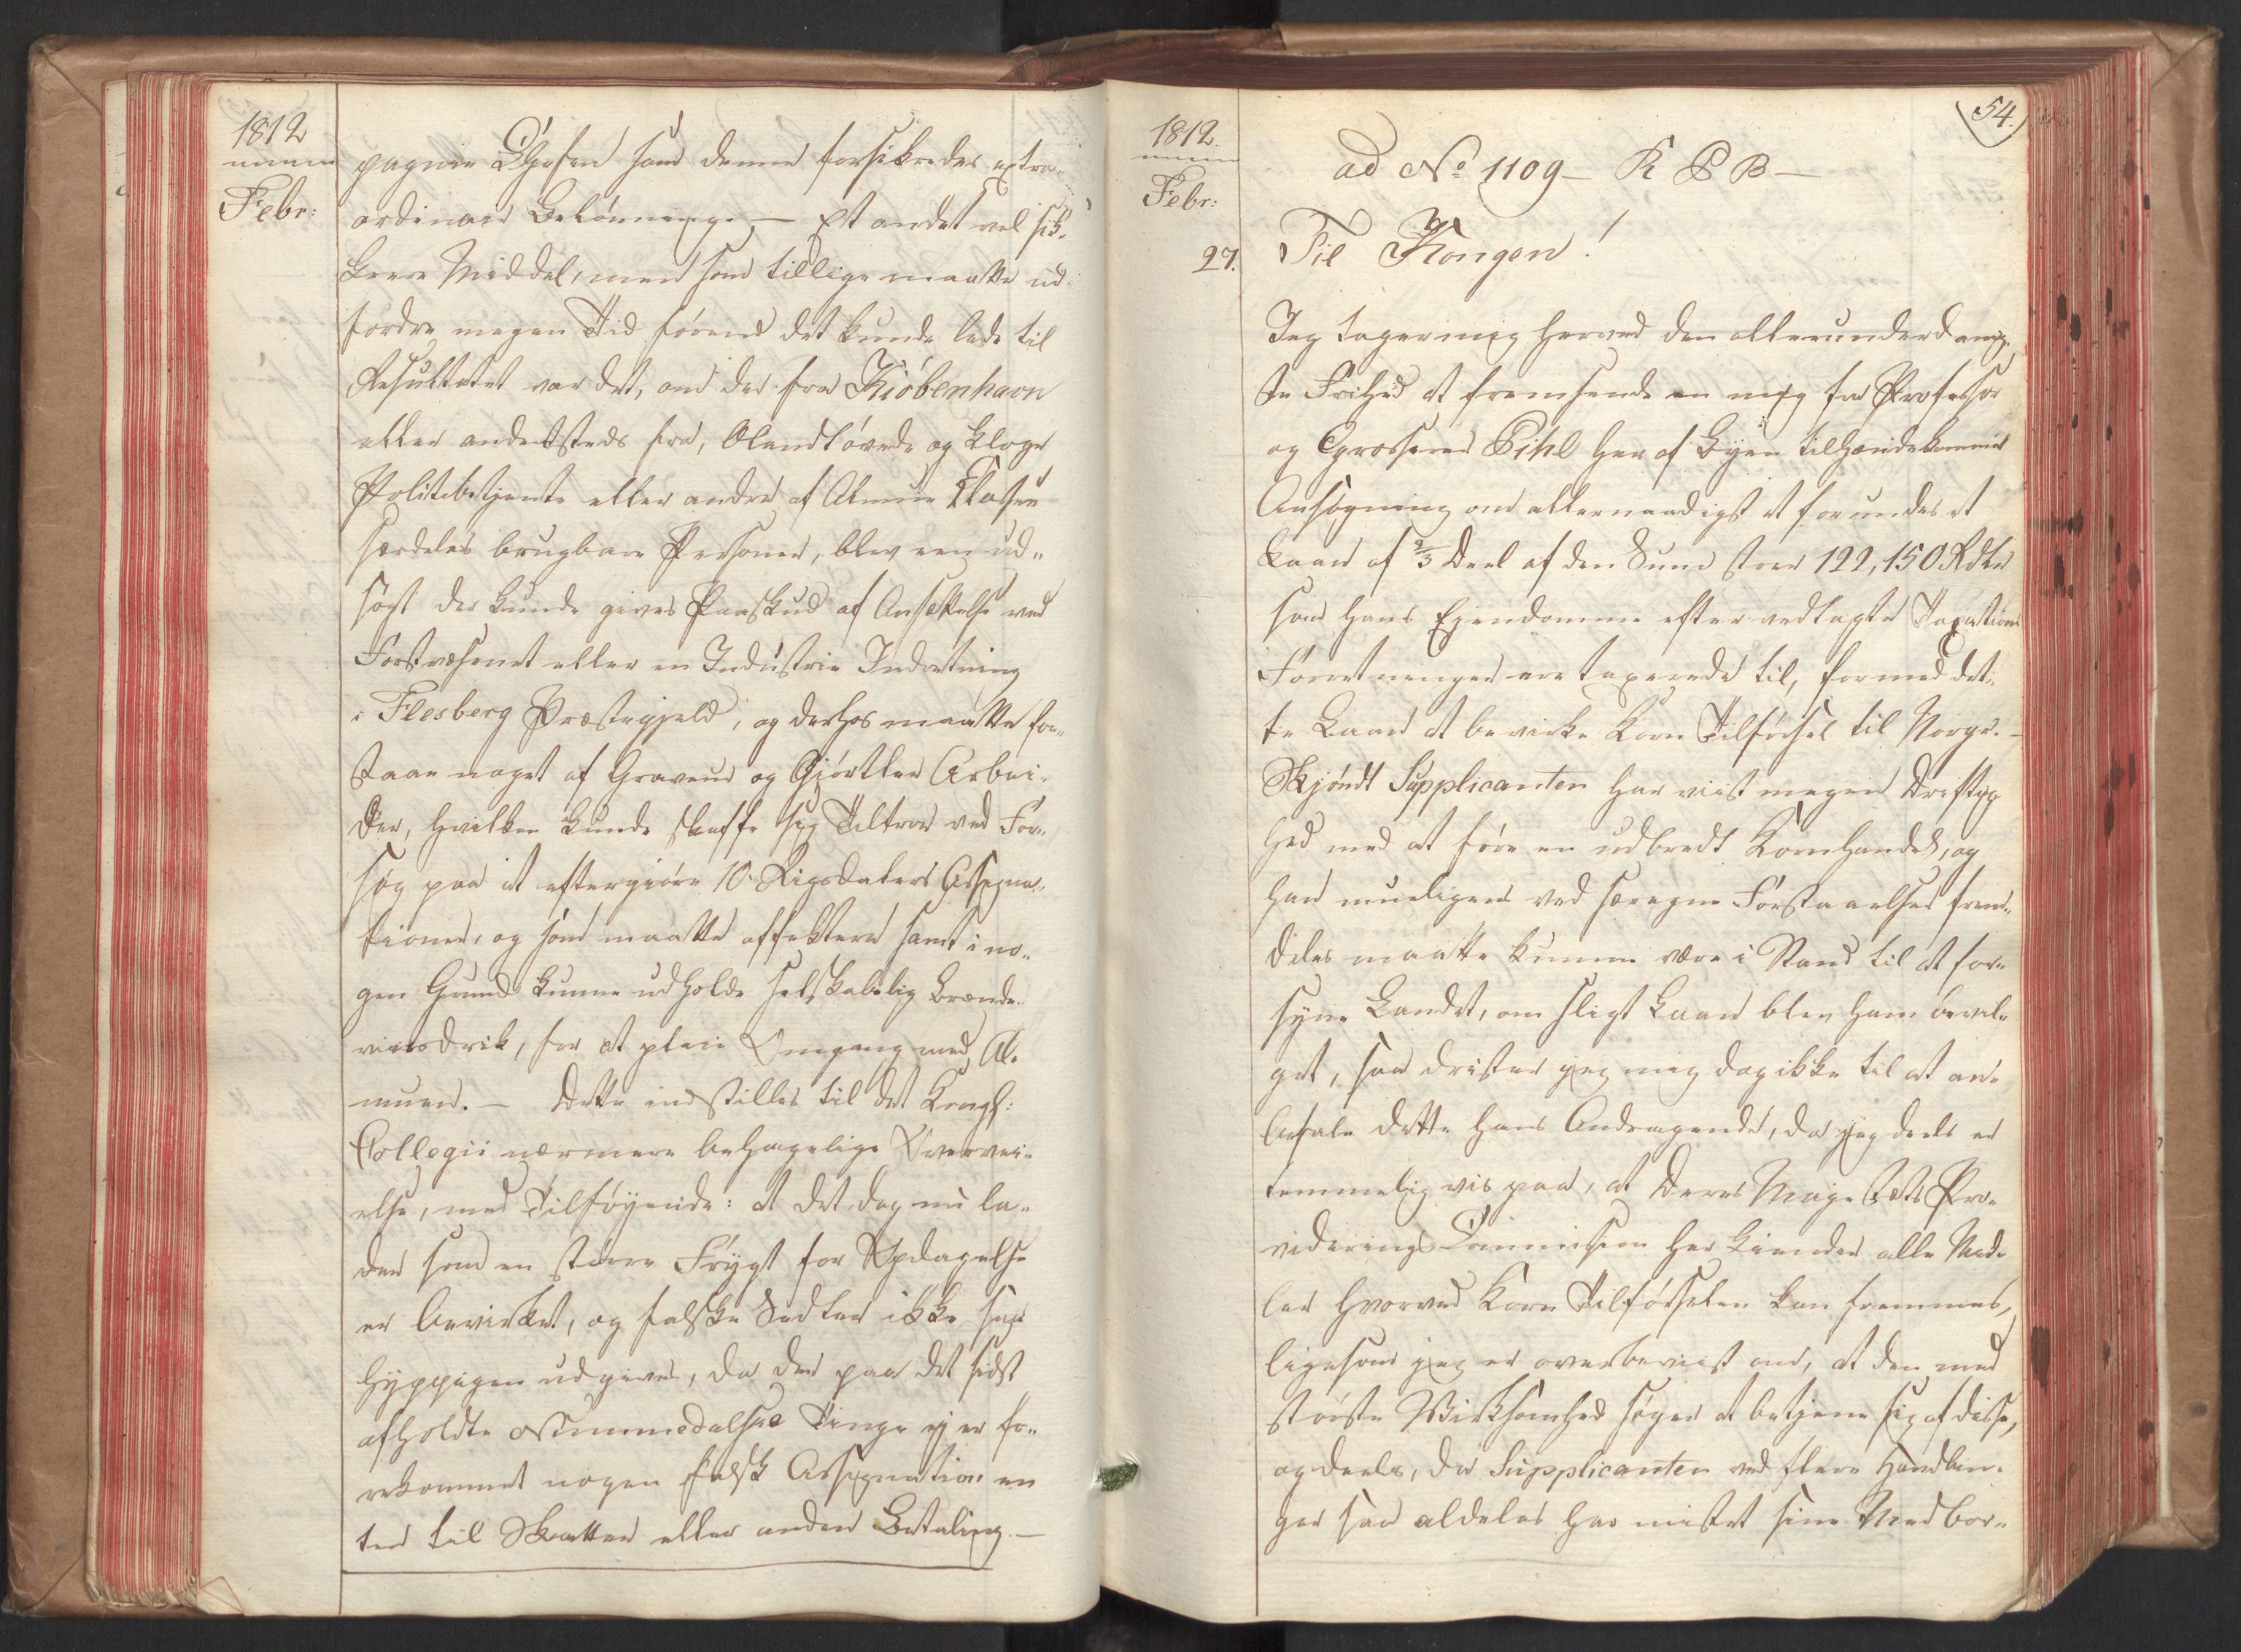 1812
Febr:
pagnie Chefen som denne forsikredes extra-
ordinair Belönning. — Et andet vel sik-
kere Middel, men som tillige maatte ud-
fordre megen Tid förend det kunde lede til
Resultatet var det, om der fra Kiöbenhavn
eller andetsteds fra, blandt övede og kloge
Politibetjente eller andre af Almue Klassen
særdeles brugbare Personer, blev een ud-
sögt der kunde gives Paaskud af Ansættelse ved
Forstvæsenet eller en Industrie Indretning
i Flesberg Præstegjeld, og derhos maatte for-
staae noget af Graveur og Gjörtler Arbei-
der, hvilken kunde skaffe sig Tiltroe ved For-
søg paa at eftergiöre 10 Rigsdalers Assigna-
tioner, og som maatte affektere samt i no-
gen Grund kunne udholde selskabelig Brænde-
viinsdrik, for at pleie Omgang med Al-
muen. — Dette indstilles til det Kongl:
Collegii nærmere behagelige Overvei-
else, med Tilföyende: at det dog nu la-
der som en större Frygt for Opdagelse
er bevirket, og falske Sedler ikke saa
hyppigen udgives, da der paa det sidst
afholdte Nummedalske Tinge ej er fo-
rekommet nogen falsk Assignation en
ten til Skatter eller anden Betaling. —
54.
1812.
Febr:
27.
ad No 1109 — K P B —
Til Kongen!
Jeg tager mig herved den allerunderdanig-
ste Frihed at fremsende en mig fra Professor
og Grosserer Pihl her af Byen tilhændekommen
Ansögning om allernaadigst at forundes et
Laan af 2/3 Deel af den Sum stor 122,150 Rdlr
som hans Ejendomme efter vedlagte Taxations
Forretninger ere taxerede til, for med det-
te Laan at bevirke Korn Tilförsel til Norge. —
Skjöndt Supplicanten har viist megen Driftig-
hed med at före en udbredt Kornhandel, og
han mueligens ved særegne Forstaaelser frem-
deles maatte kunne være i Stand til at for-
syne Landet, om sligt Laan blev ham bevil-
get, saa drister jeg mig dog ikke til at an-
befale dette hans Andragende, da jeg deels er
temmelig vis paa, at Deres Majestæts Pro-
viderings Commission her kiender alle Mid-
ler hvorved Korn Tilförselen kan fremmes,
ligesom jeg er overbeviist om, at den med
störste Virksomhed söger at betjene sig af disse,
og deels, da Supplicanten ved flere Handlin-
ger saa aldeles har mistet sine Medbor-